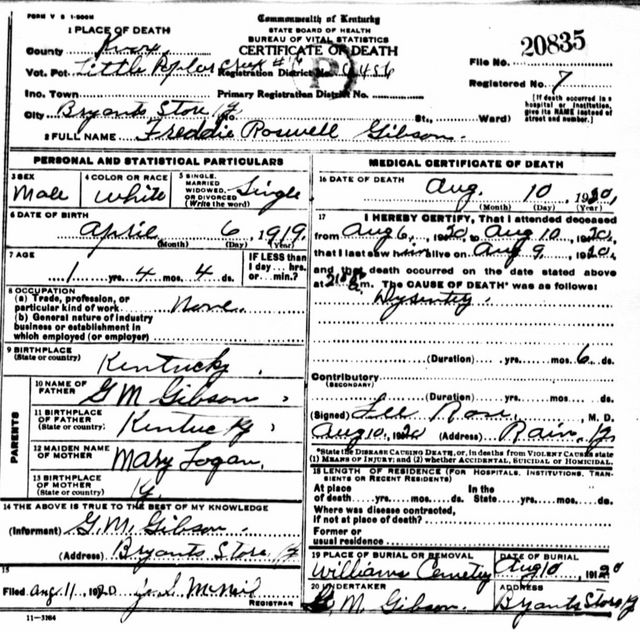 FORM V S 1-500M
Commonwealth of Kentucky
STATE BOARD OF HEALTH
BUREAU OF VITAL STATISTICS
CERTIFICATE OF DEATH
1 PLACE OF DEATH
County Knox
Vot. Pct. Little Poplar Creek #16 Registration District No.
Inc. Town Primary Registration District No.
City Bryants Store Ky (No. St., Ward)
File No. 20835
Registered No. 7
[If death occurred in a hospital or institution, give its NAME instead of street and number.]
2 FULL NAME Freddie Roswell Gibson
PERSONAL AND STATISTICAL PARTICULARS
3 SEX Male
4 COLOR OR RACE White
5 SINGLE, MARRIED WIDOWED, OR DIVORCED (Write the word) Single
6 DATE OF BIRTH
April 6, 1919
(Month) (Day) (Year)
7 AGE
1 yrs. 4 mos. 4 ds.
IF LESS than 1 day... hrs. or... min.?
8 OCCUPATION
(a) Trade, profession, or particular kind of work None
(b) General nature of industry business or establishment in which employed (or employer)
9 BIRTHPLACE
(State or country) Kentucky
PARENTS
10 NAME OF FATHER G M Gibson
11 BIRTHPLACE OF FATHER (State or country) Kentucky
12 MAIDEN NAME OF MOTHER Mary Logan
13 BIRTHPLACE OF MOTHER (State or country) Ky
14 THE ABOVE IS TRUE TO THE BEST OF MY KNOWLEDGE
(Informant) G. M. Gibson
(Address) Bryants Store, Ky
15
Filed Aug 11, 1920
REGISTRAR
11-3184
MEDICAL CERTIFICATE OF DEATH
16 DATE OF DEATH Aug. 10, 1920
(Month) (Day) (Year)
17 I HEREBY CERTIFY, That I attended deceased
from Aug 6, 1920, to Aug 10, 1920,
that I last saw him alive on Aug 9, 1920,
and that death occurred on the date stated above
at m. The CAUSE OF DEATH* was as follows:
Dysentery
(Duration) yrs. mos. 6 ds.
Contributory
(SECONDARY)
(Duration) yrs. mos. ds.
(Signed) Lee Rose, M. D.
Aug 10, 1920 (Address) Rain, Ky
*State the DISEASE CAUSING DEATH, or, in deaths from VIOLENT CAUSES state (1) MEANS OF INJURY; and (2) whether ACCIDENTAL, SUICIDAL OR HOMICIDAL.
18 LENGTH OF RESIDENCE (FOR HOSPITALS, INSTITUTIONS, TRANSIENTS OR RECENT RESIDENTS)
At place of death yrs. mos. ds. In the State yrs. mos. ds.
Where was disease contracted,
if not at place of death?
Former or
usual residence
19 PLACE OF BURIAL OR REMOVAL Williams Cemetry
DATE OF BURIAL Aug 10, 1920
20 UNDERTAKER G. M. Gibson
ADDRESS Bryants Store Ky